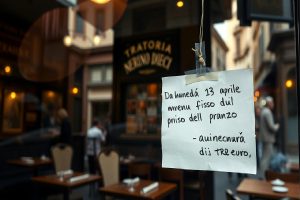 TRATTORIA
NERINO DIECI
Da lunedá 13 aprile
menu fisso dul
priso dell pranzo
- auinecnará
dis TR2 euro,